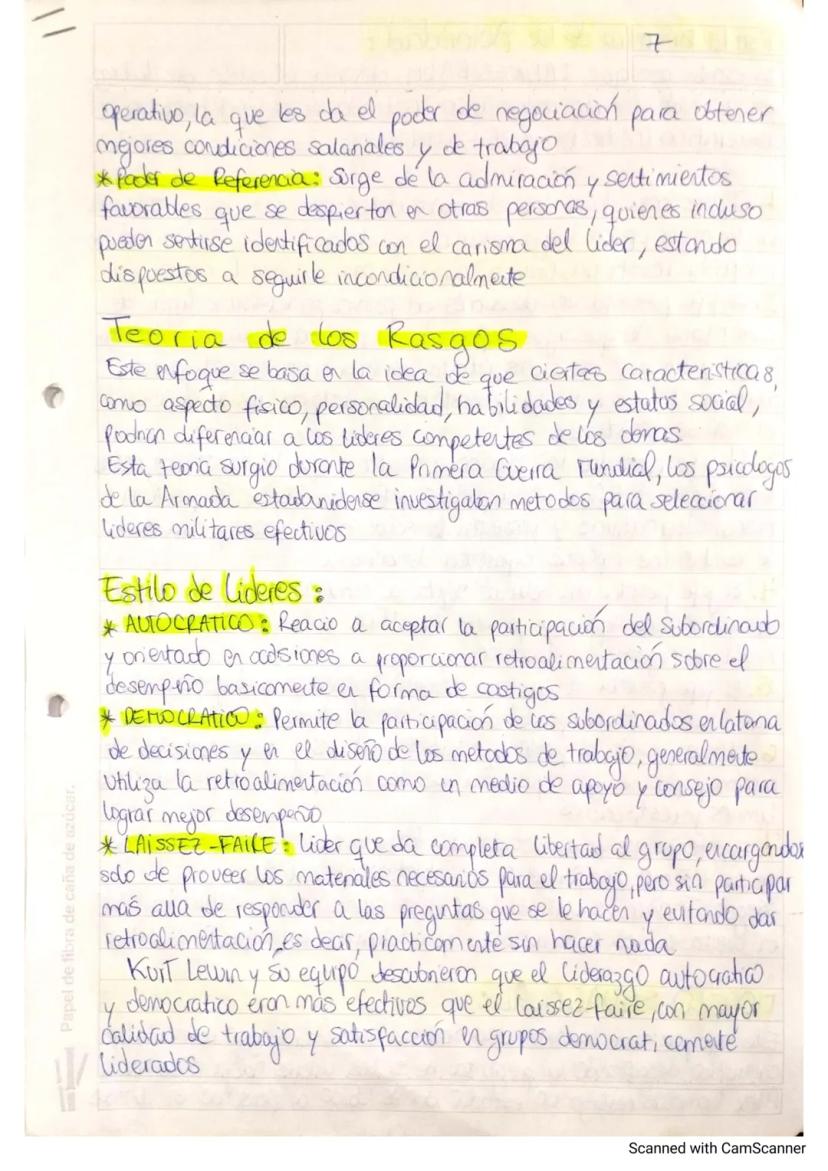 7
operativo, la que les da el poder de negociación para obtener
mejores condiciones salariales y de trabajo
* Poder de Referencia: Surge de la admiración y sentimientos
favorables que se despierton en otras personas, quienes incluso
pueden sentirse identificados con el carisma del lider, estando
dispuestos a seguirle incondicionalmente
Teoria de los Rasgos
Este enfoque se basa en la idea de que ciertas caracteristicas,
como aspecto fisico, personalidad, habilidades y estatus social,
podrian diferenciar a los lideres competentes de los demas
Esta teoria surgio durante la Primera Guerra Mundial, los psicologos
de la Armada estadounidense investigaban metodos para seleccionar
lideres militares efectivos
Estilo de Lideres :
* AUTOCRATICO: Reacio a aceptar la participación del Subordinado
y orientado en ocasiones a proporcionar retroalimentación sobre el
desempeño basicamente en forma de castigos
* DEMOCRATICO: Permite la participación de los subordinados en la toma
de decisiones y en el diseño de los metodos de trabajo, generalmente
utiliza la retroalimentación como un medio de apoyo y consejo para
lograr mejor desempeño
* LAISSEZ-FAIRE: lider que da completa libertad al grupo, encargandose
solo de proveer los materiales necesarios para el trabajo, pero sin participar
mas alla de responder a las preguntas que se le hacen y evitando dar
retroalimentación, es decir, practicamente sin hacer nada
Kurt Lewin y su equipo descubrieron que el liderazgo autocratico
y democratico eran mas efectivos que el laissez-faire, con mayor
calidad de trabajo y satisfacción en grupos democraticamente
liderados
Papel de fibra de caña de azúcar.
Scanned with CamScanner